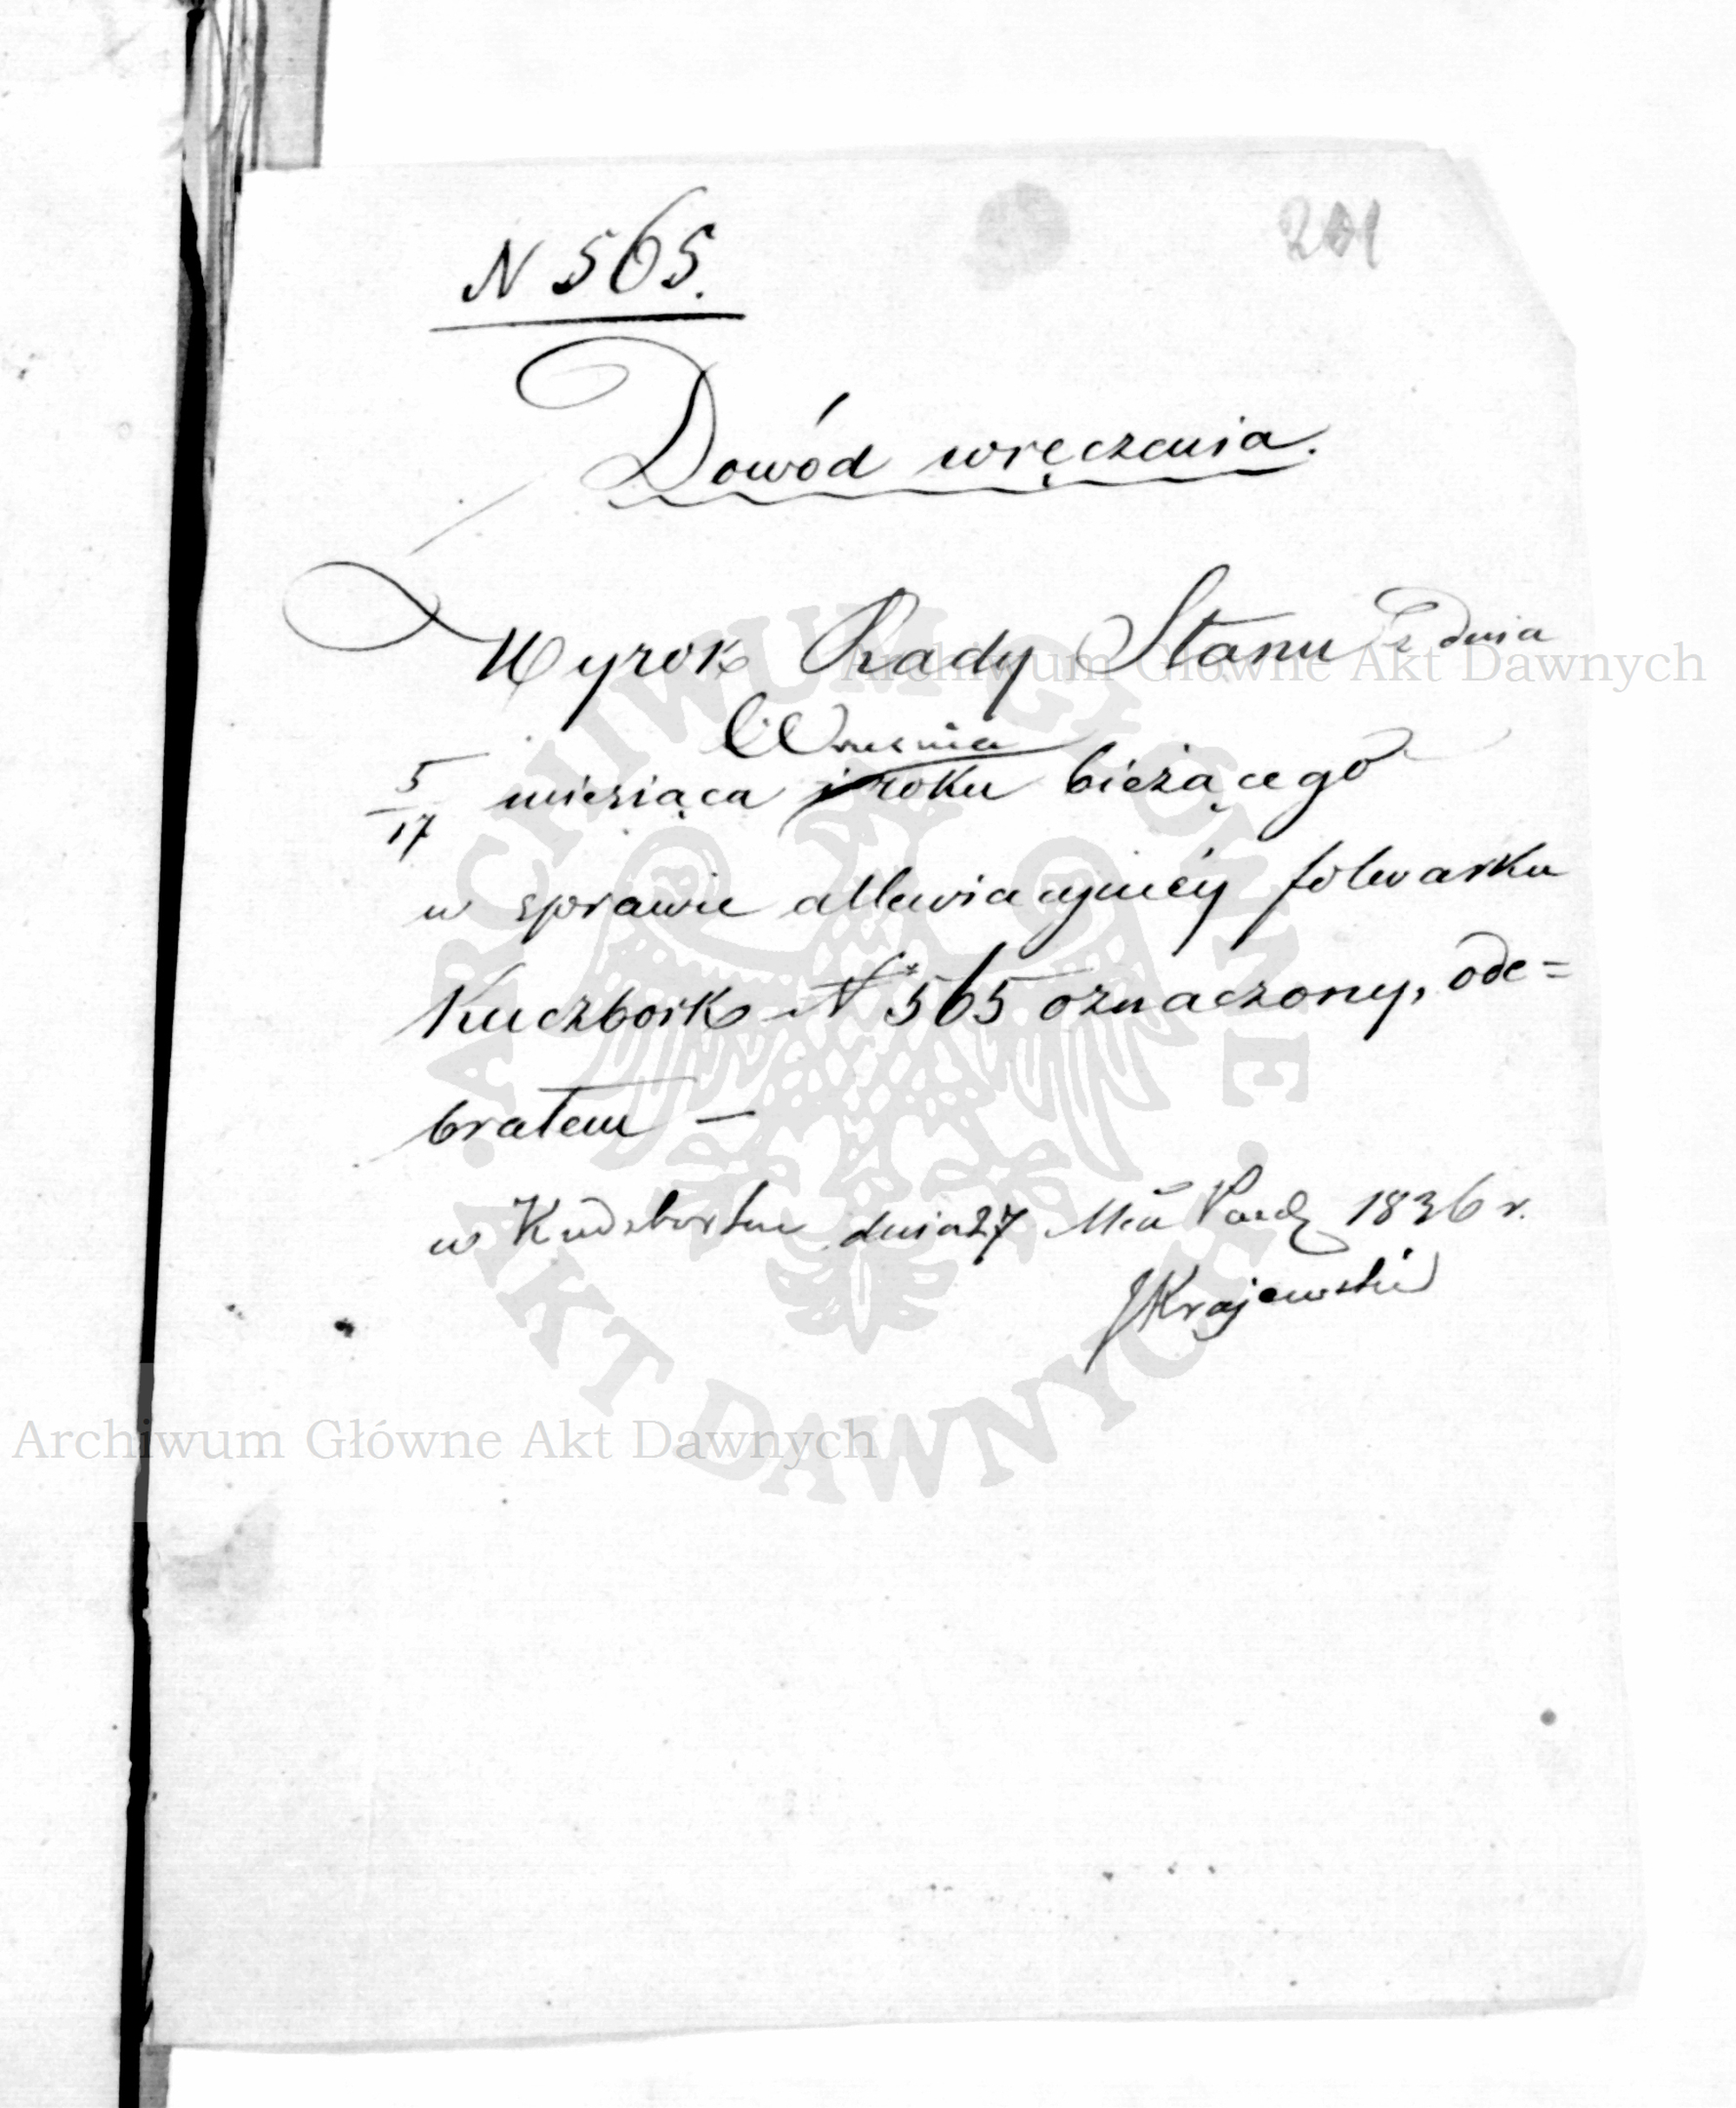 201
N 565.
Dowód wręczenia.
Wyrok Rady Stanu z dnia
Wrzesnia
5/17 miesiąca i roku bieżącego
w sprawie allewiacyjnéy folwarku
Kuczbork N 565 oznaczony, ode=
brałem —
w Kudzborku dnia 27 Mca Paźdz 1836 r.
JKrajewski
Archiwum Główne Akt Dawnych
Archiwum Główne Akt Dawnych
ARCHIWUM GŁÓWNE AKT DAWNYCH